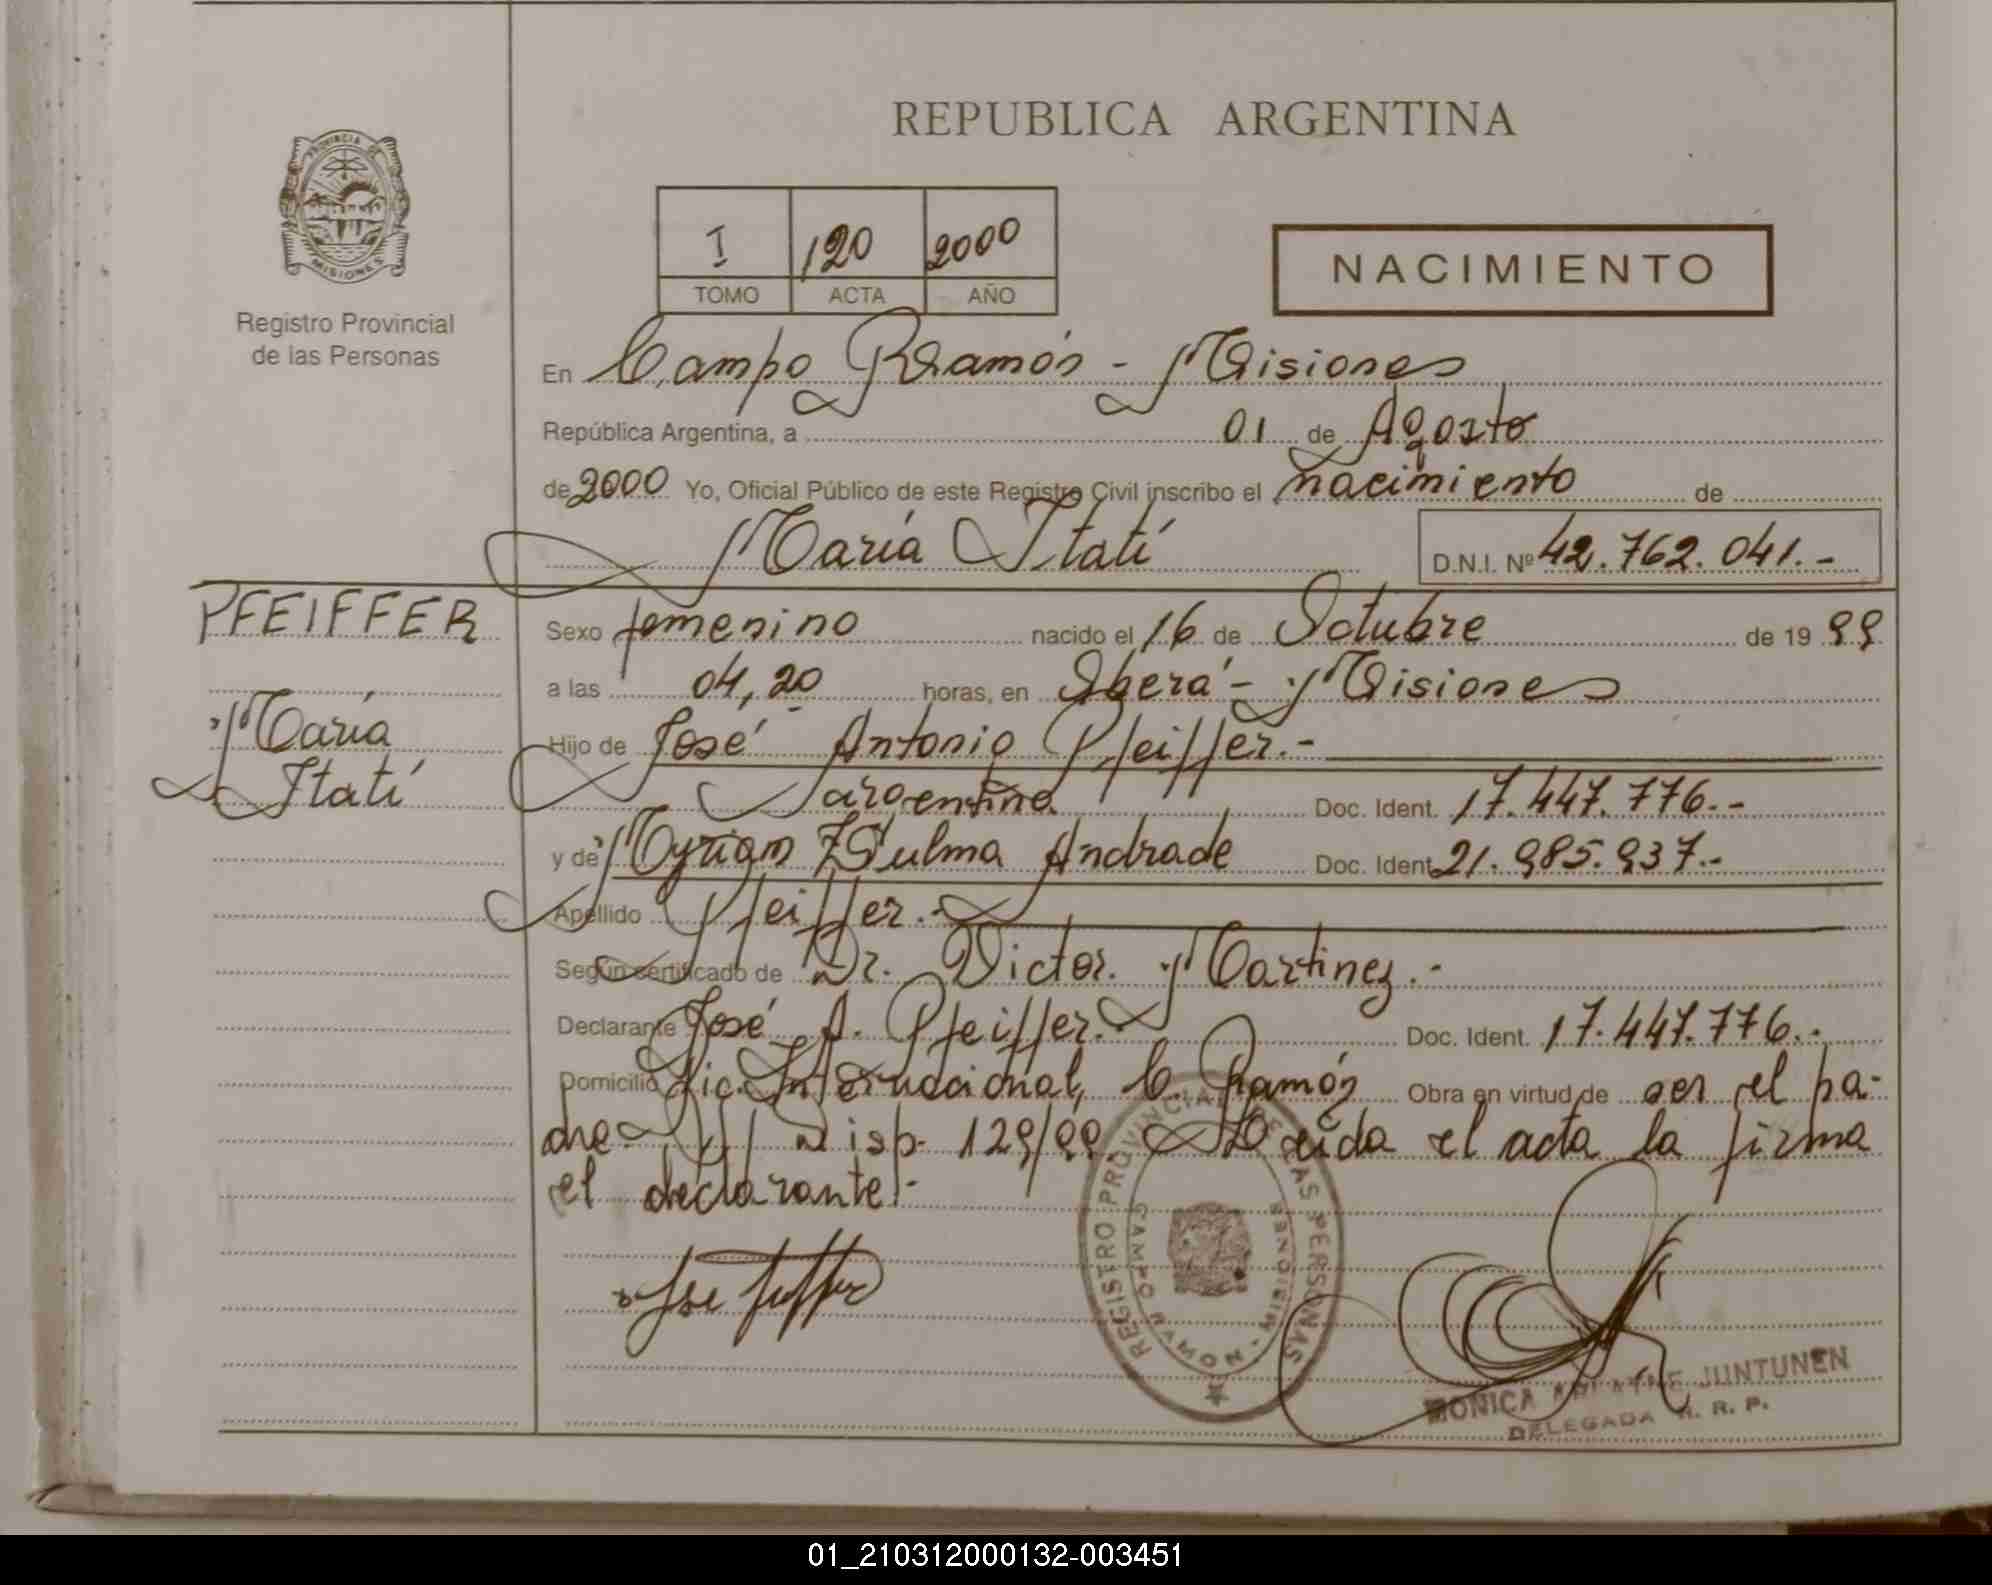 REPUBLICA ARGENTINA
PROVINCIA DE
MISIONES
Registro Provincial
de las Personas
I 120 2000
TOMO ACTA AÑO
NACIMIENTO
En Campo Ramón - Misiones
República Argentina, a 01 de Agosto
de 2000 Yo, Oficial Público de este Registro Civil inscribo el nacimiento de
María Itatí D.N.I. Nº 42.762.041.-
PFEIFFER
María
Itatí
Sexo femenino nacido el 16 de Octubre de 19 99
a las 04,20 horas, en Oberá - Misiones
Hijo de José Antonio Pfeiffer.-
argentina Doc. Ident. 17.447.776.-
y de Myrian Zulma Andrade Doc. Ident. 21.985.937.-
Apellido Pfeiffer.-
Según certificado de Dr. Victor Martinez.-
Declarante José A. Pfeiffer.- Doc. Ident. 17.447.776.-
Domicilio Pic. Internacional, C. Ramón Obra en virtud de ser el pa-
dre Disp. 129/99. Leída el acta la firma
el declarante.-
REGISTRO PROVINCIAL DE LAS PERSONAS
CAMPO RAMON - MISIONES
MONICA JUNTUNEN
DELEGADA R. R. P.
01_210312000132-003451